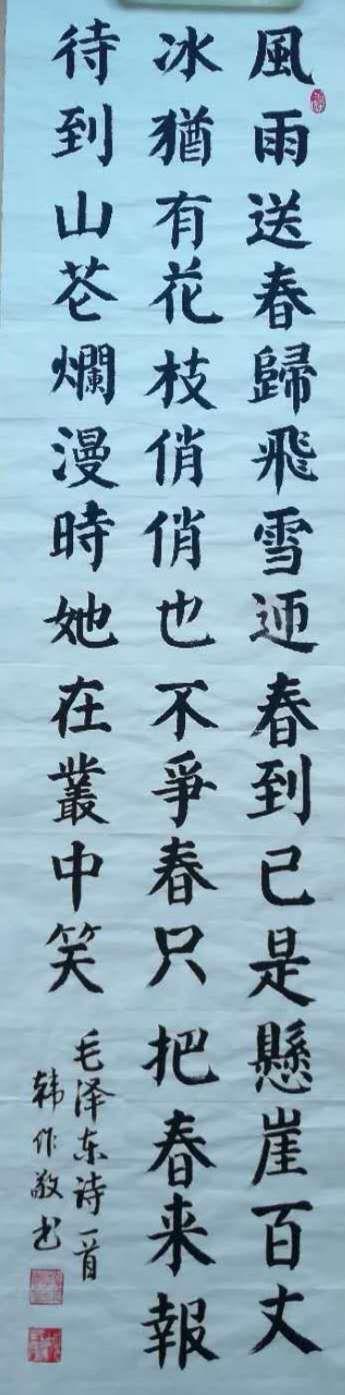 風雨送春歸飛雪迎春到已是懸崖百丈
冰猶有花枝俏俏也不爭春只把春来報
待到山花爛漫時她在叢中笑
毛泽东诗一首
韩作敬书